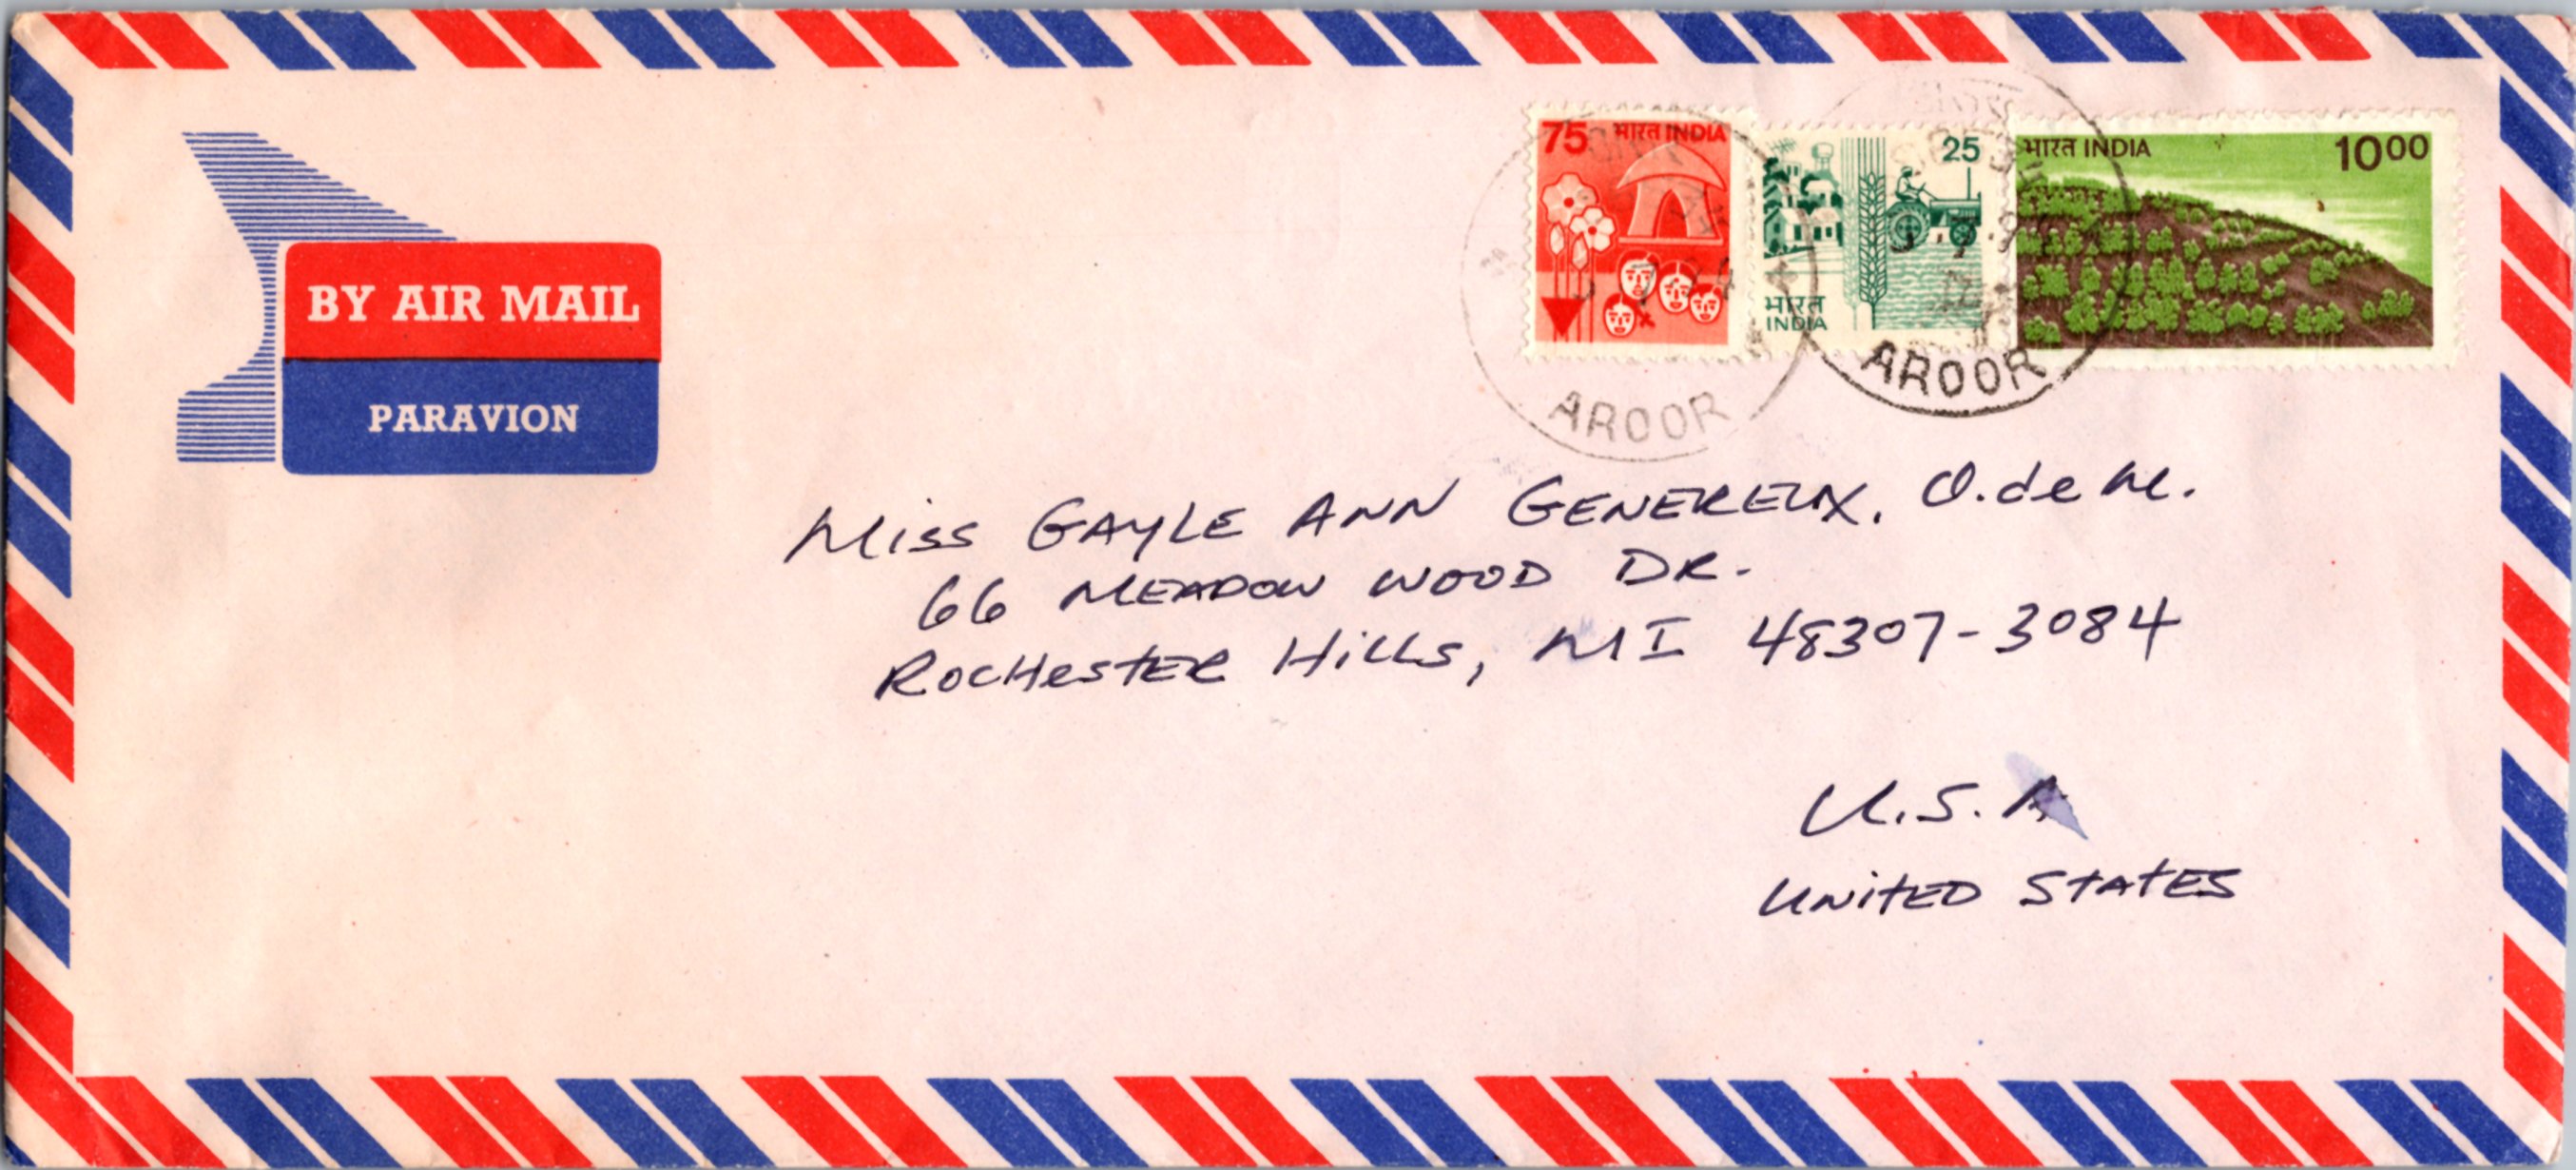 BY AIR MAIL
PARAVION
75 भारत INDIA
25
भारत
INDIA
भारत INDIA 10 00
AROOR
AROOR
Miss GAYLE ANN GENEREUX, O.deM.
66 MEADOW WOOD DR.
ROCHESTER HILLS, MI 48307-3084
U.S.A
UNITED STATES